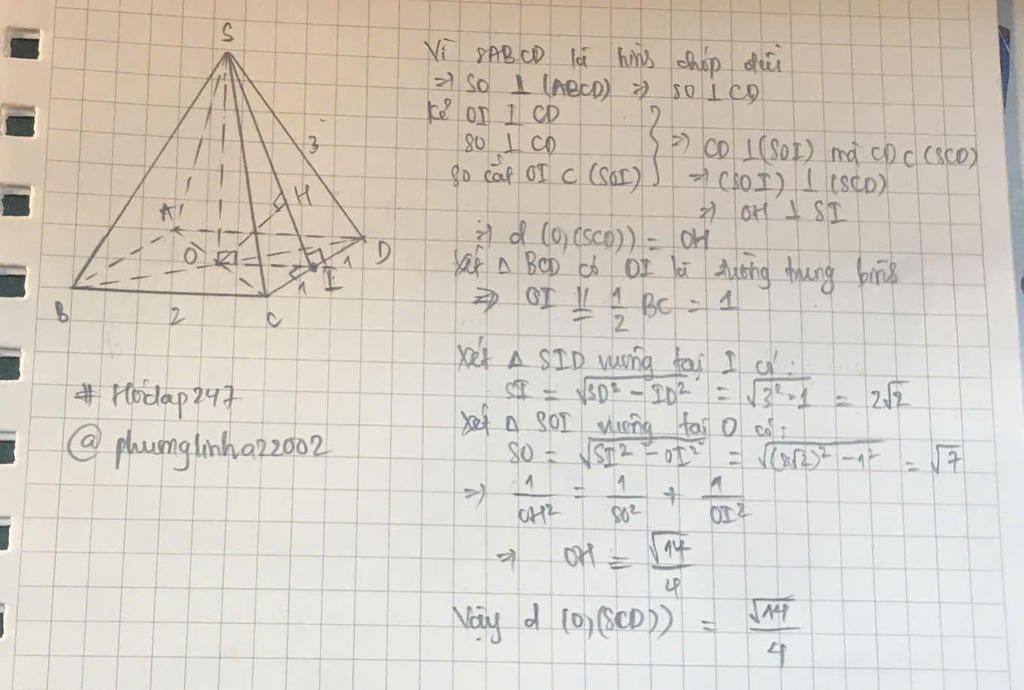 S
3
H
A
O
D
1
I
1
B
2
C
# Hoidap247
@ phuonglinha22002
Vì SABCD là hình chóp đều
=> SO ⊥ (ABCD) => SO ⊥ CD
Kẻ OI ⊥ CD
SO ⊥ CD
SO cắt OI ⊂ (SOI) } => CD ⊥ (SOI) mà CD ⊂ (SCD)
=> (SOI) ⊥ (SCD)
=> OH ⊥ SI
=> d (O,(SCD)) = OH
Xét Δ BCD có OI là đường trung bình
=> OI // = 1/2 BC = 1
Xét Δ SID vuông tại I có:
SI = √(SD² - ID²) = √(3² - 1) = 2√2
Xét Δ SOI vuông tại O có:
SO = √(SI² - OI²) = √((2√2)² - 1²) = √7
=> 1/OH² = 1/SO² + 1/OI²
=> OH = √14/4
Vậy d (O,(SCD)) = √14/4